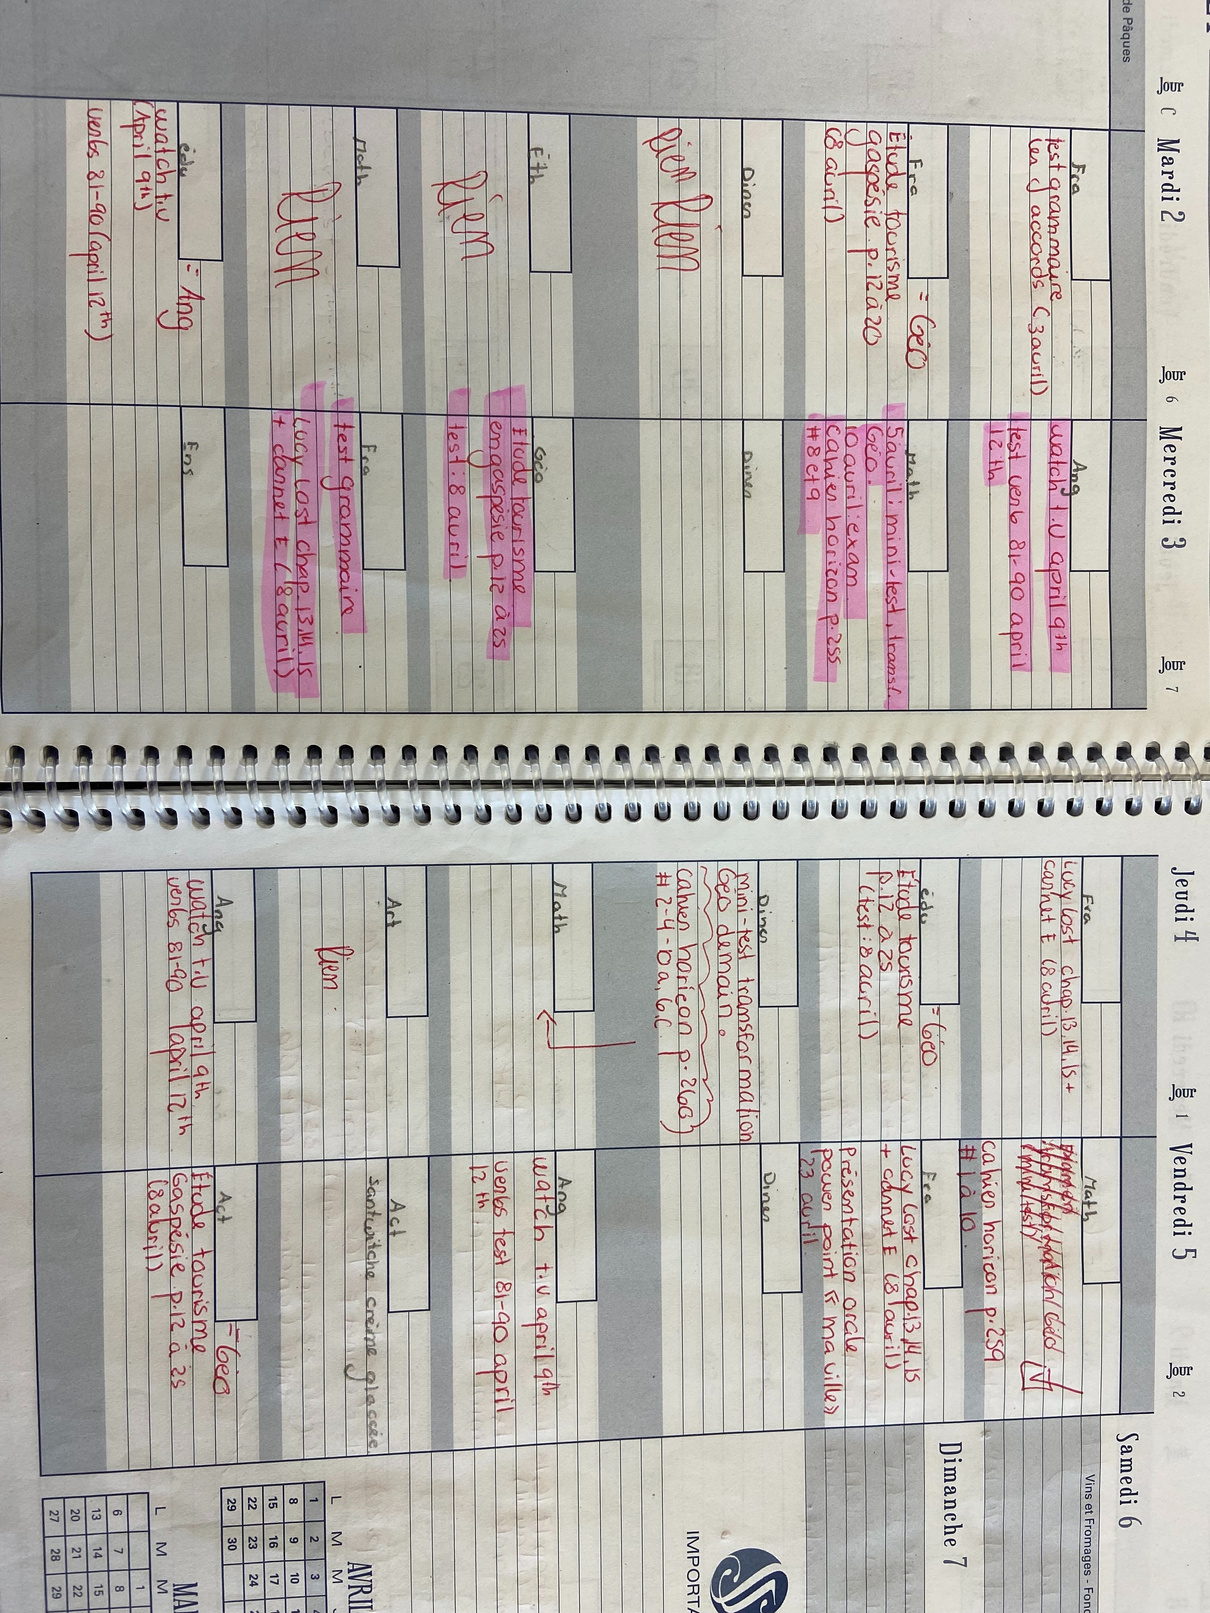 de Pâques
Jour C Mardi 2
Fra
test grammaire
les accords (3 avril)
Fra = Géo
Étude tourisme
gaspésie p.12 à 20
(8 avril)
Diner
Rien Rien
Éth
Rien
Math
Rien
édu = Ang
watch t.v
(April 9th)
verbs 81-90 (april 12th)
Jour 6 Mercredi 3
Ang
watch t.v april 9th
test verb 81-90 april
12th
Math
5 avril: mini-test, transf.
Géo.
10 avril: exam
cahier horizon p.255
#8 et 9
Diner
Géo
Étude tourisme
en gaspésie p.12 à 25
test: 8 avril
Fra
test grammaire
Lucy lost chap. 13,14,15
+ carnet E (8 avril)
Ens
Jour 7
Jeudi 4
Fra
Lucy lost chap.13,14,15 +
carnet E (8 avril)
édu = Géo
Étude tourisme
p.12 à 25
(test: 8 avril)
Diner
mini-test transformation
Géo demain.
cahier horizon p.260
#2-4-10 a,b,c
Math
Art
Rien
Ang
watch t.v april 9th
verbs 81-90 (april 12th
Jour 1 Vendredi 5
Math
cahier horizon p.259
#1 à 10
Fra
Lucy lost chap.13,14,15
+ carnet E (8 avril)
Présentation orale
power point « ma ville»
23 avril
Diner
Ang
watch t.v april 9th
verbs test 81-90 april
12th
Act
santwitche crème glaccée
Act = Géo
Étude tourisme
Gaspésie p.12 à 25
(8 avril)
Jour 2
Samedi 6
Vins et Fromages - Fond
Dimanche 7
IMPORTA
AVRIL
L M M
1 2 3
8 9 10
15 16 17
22 23 24
29 30
MAI
L M M
1
6 7 8
13 14 15
20 21 22
27 28 29